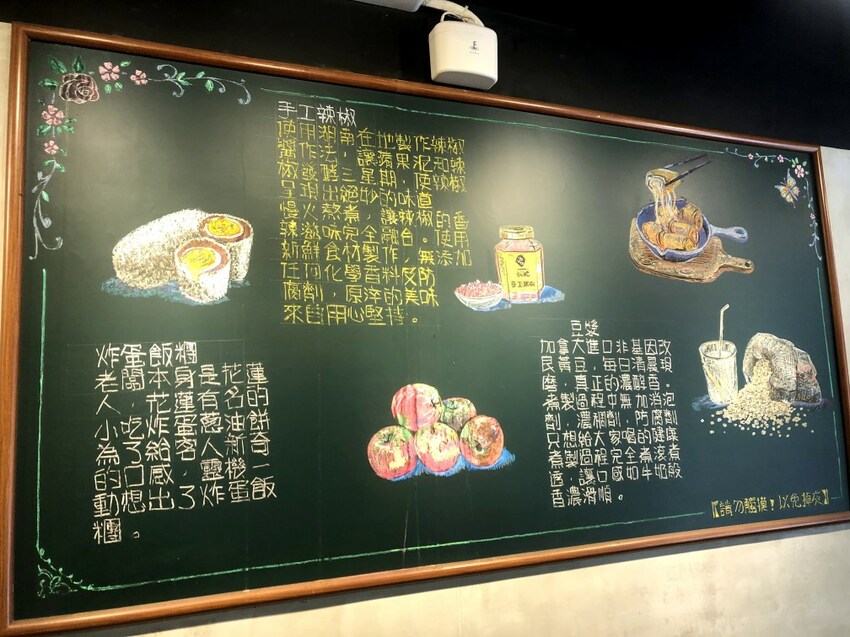 手工辣椒
使用湖南在地製作辣椒
醬作法，讓蘋果泥和辣
椒發酵三星期，使辣椒
呈現出絕妙的味道
慢火熬煮，讓辣椒的香
辣滋味完全融合。使用
新鮮食材製作，無添加
任何化學香料及防
腐劑，原淬的美味
來自用心堅持。
炸蛋飯糰
老闆本身是花蓮
人，花蓮有名的
小吃炸蛋蔥油餅
為了給客人新奇
的口感，靈機一
動想出了炸蛋飯
糰。
豆漿
加拿大進口非基因改
良黃豆，每日清晨現
磨，真正的濃醇香。
煮製過程中無加消泡
劑，濃稠劑，防腐劑
只想給大家喝的健康
煮製過程完全煮滾煮
適，讓口感如牛奶般
香濃滑順。
【請勿觸摸！以免掉灰】